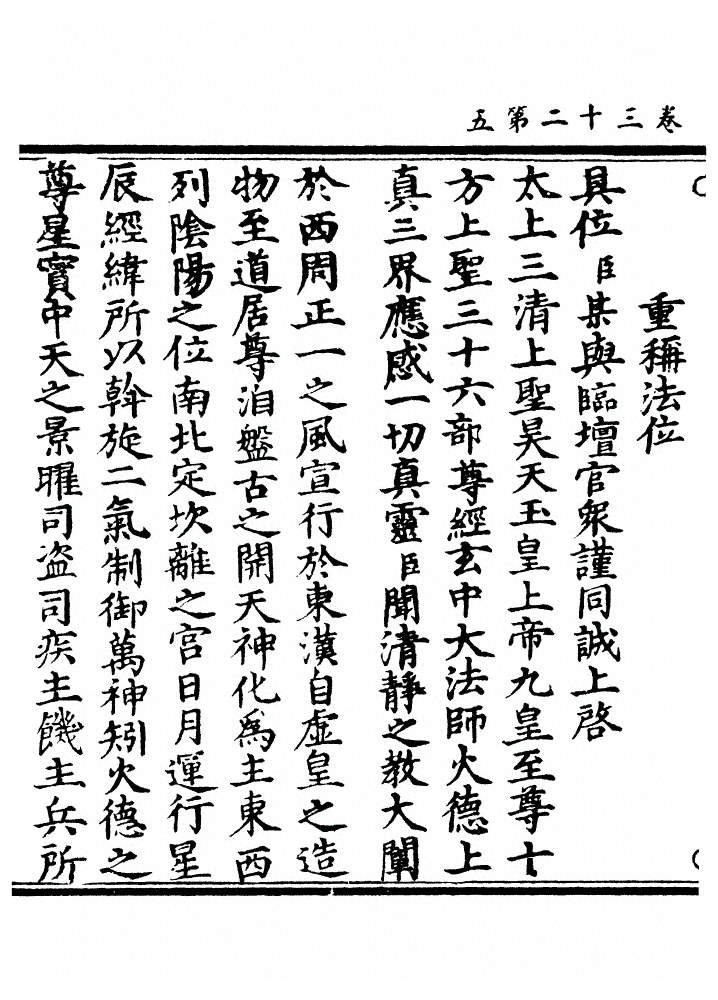 卷三十二第五
重稱法位
具位臣某與臨壇官衆謹同誠上啓
太上三清上聖昊天玉皇上帝九皇至尊十
方上聖三十六部尊經玄中大法師火德上
真三界應感一切真靈臣聞清靜之教大闡
於西周正一之風宣行於東漢自虛皇之造
物至道居尊洎盤古之開天神化爲主東西
列陰陽之位南北定坎離之宮日月運行星
辰經緯所以斡旋二氣制御萬神矧火德之
尊星實中天之景曜司盗司疾主饑主兵所